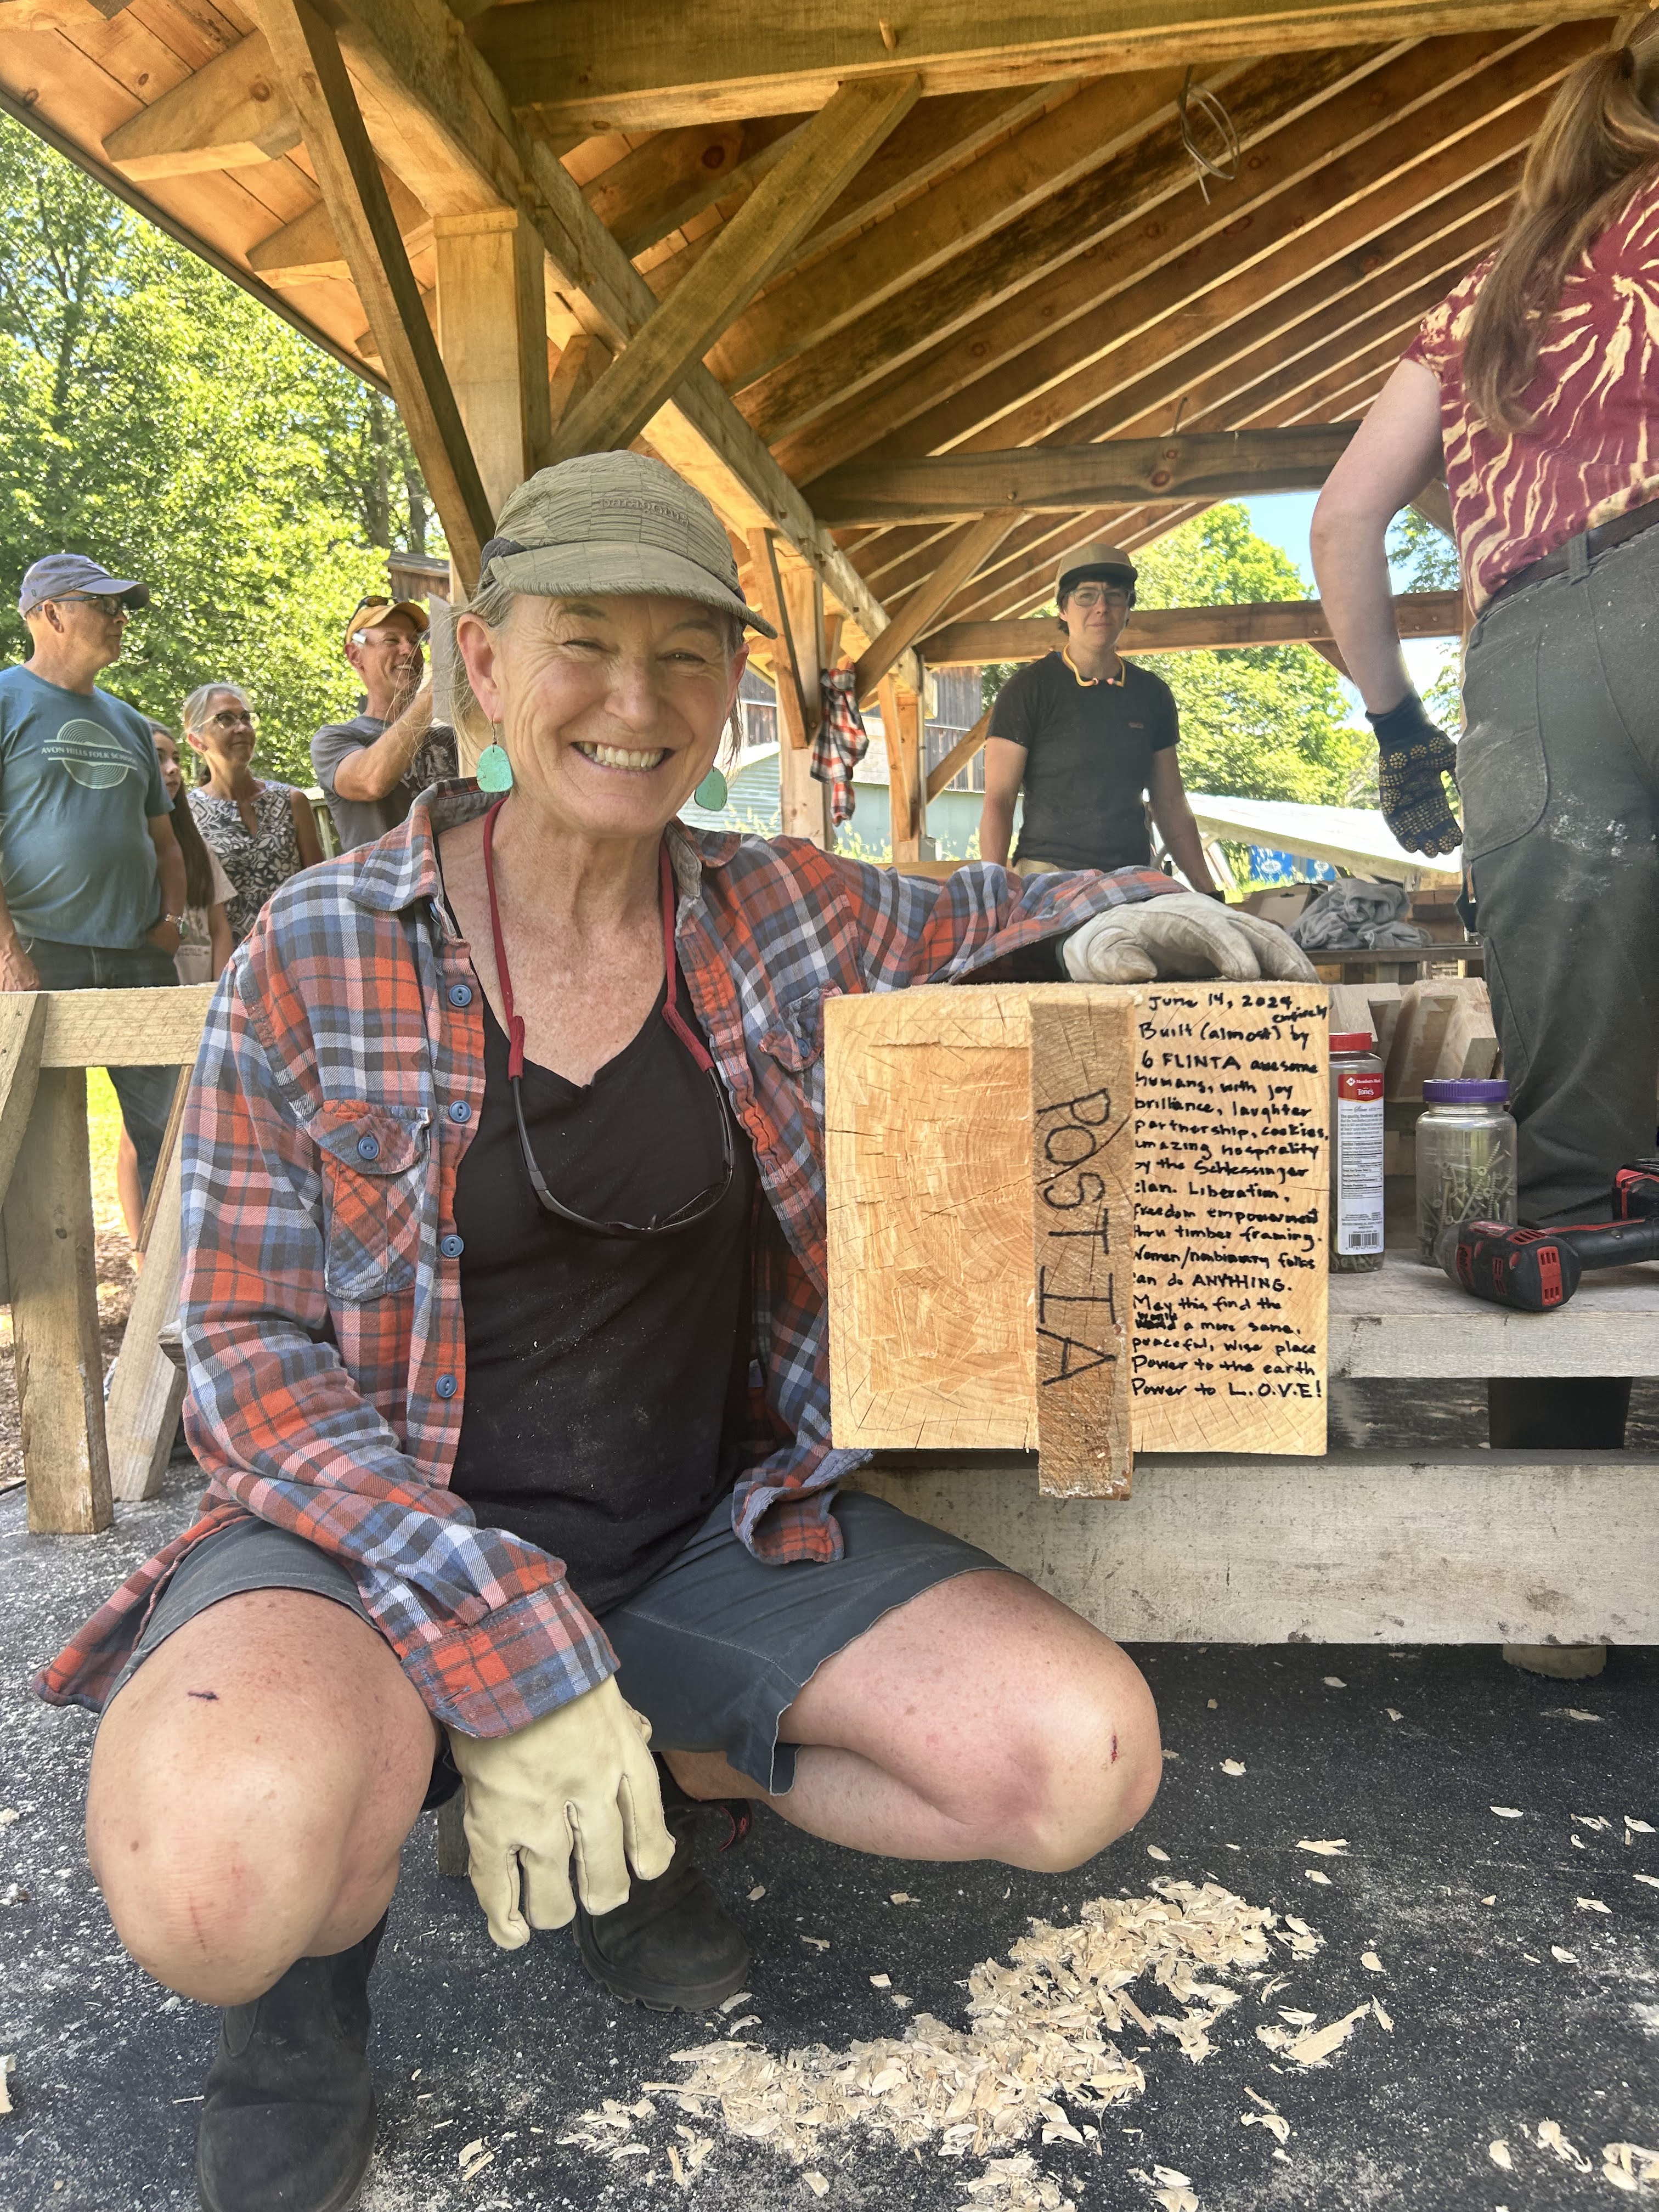 patagonia
AVON HILLS FOLK SCHOOL
June 14, 2024
entirely
Built (almost) by
6 FLINTA awesome
humans, with joy
brilliance, laughter
partnership, cookies,
amazing hospitality
by the Schlessinger
clan. Liberation,
freedom empowerment
thru timber framing.
Women/nonbinary folks
can do ANYTHING.
May this find the
world a more sane,
peaceful, wise place
Power to the earth
Power to L.O.V.E!
POST IA
Tone's